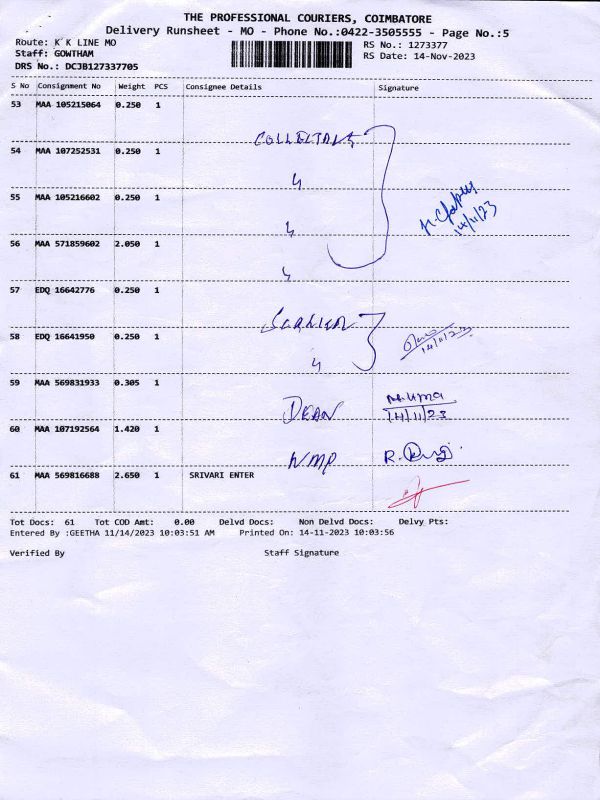 THE PROFESSIONAL COURIERS, COIMBATORE
Delivery Runsheet - MO - Phone No.:0422-3505555 - Page No.:5
Route: K K LINE MO
RS No.: 1273377
Staff: GOWTHAM
RS Date: 14-Nov-2023
DRS No.: DCJB127337705
S No Consignment No Weight PCS Consignee Details Signature
53 MAA 105215064 0.250 1
54 MAA 107252531 0.250 1
55 MAA 105216602 0.250 1
14/11/23
56 MAA 571859602 2.050 1
57 EDQ 16642776 0.250 1
58 EDQ 16641950 0.250 1
14/11/23
59 MAA 569831933 0.305 1 DEAN
14/11/23
60 MAA 107192564 1.420 1 NMP R.
61 MAA 569816688 2.650 1 SRIVARI ENTER
Tot Docs: 61 Tot COD Amt: 0.00 Delvd Docs: Non Delvd Docs: Delvy Pts:
Entered By :GEETHA 11/14/2023 10:03:51 AM Printed On: 14-11-2023 10:03:56
Verified By Staff Signature